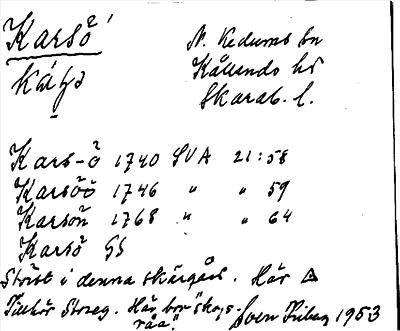 Karsö
N. Kedums sn
Kållands hd
Skarab. l.
Kars-ö 1740 GVA 21:58
Karsöö 1746 " " 59
Karsön 1768 " " 64
Karsö GS
Störst i denna skärgård. Här
Tillhör Storeg. Här bor "skogs-
råa". Sven 1953